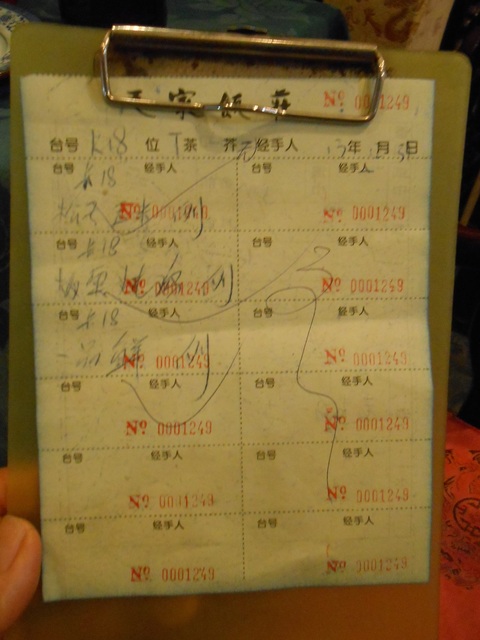 家飯莊 Nº 0001249
台号 卡18 位 茶 芥 经手人 年 月 日
台号 经手人 台号 经手人
卡18
Nº 0001249 Nº 0001249
台号 经手人 台号 经手人
卡18
Nº 0001249 Nº 0001249
台号 经手人 台号 经手人
卡18
一品 Nº 0001249 Nº 0001249
台号 经手人 台号 经手人
Nº 0001249 Nº 0001249
台号 经手人 台号 经手人
Nº 0001249 Nº 0001249
台号 经手人 台号 经手人
Nº 0001249 Nº 0001249